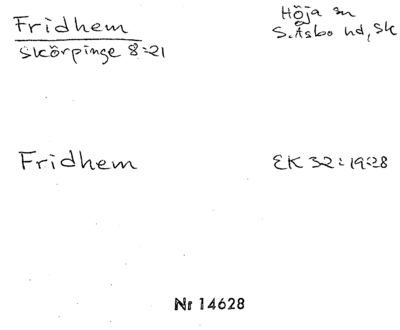 Fridhem
Skörpinge 8:21
Höja sn
S. Åsbo hd, Sk
Fridhem
EK 32:19:28
Nr 14628